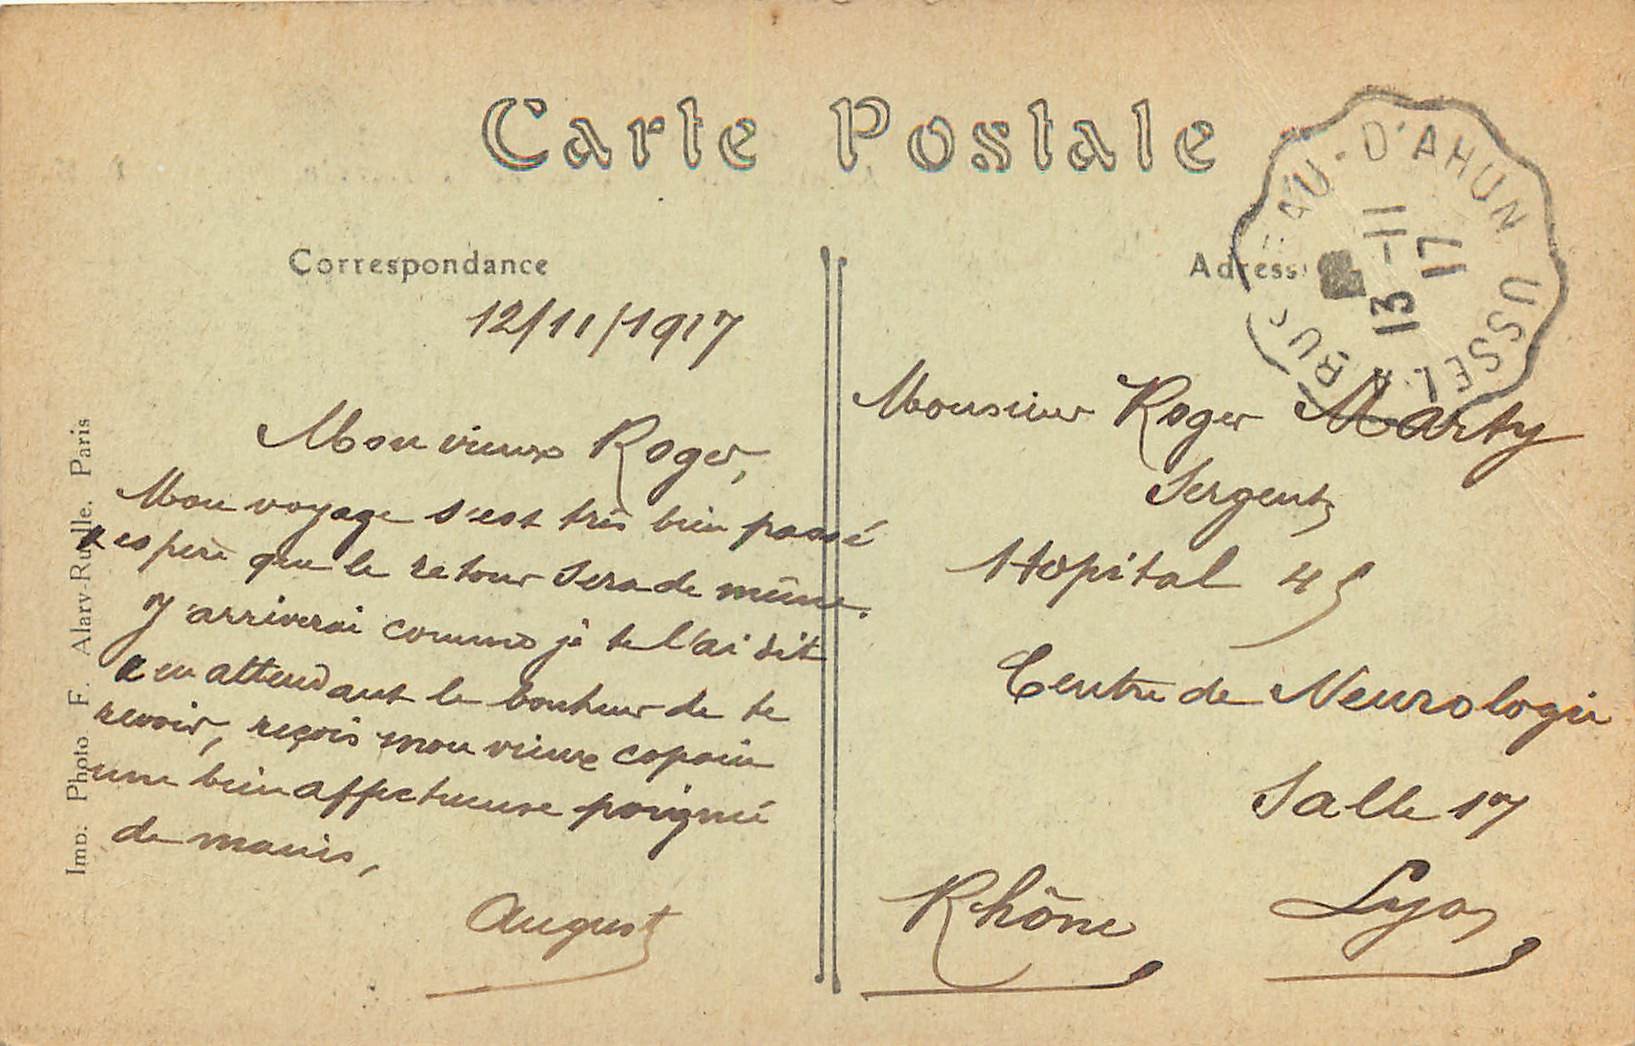 Carte Postale
Correspondance
Adress
12/11/1917
Mon vieux Roger,
Mon voyage s'est très bien passé
espère que le retour sera de même.
J'arriverai comme je te l'ai dit
en attendant le bonheur de te
revoir, reçois mon vieux copain
une bien affectueuse poignée
de mains,
August
Monsieur Roger Marty
Sergent
Hôpital 45
Centre de Neurologie
Salle 17
Lyon
Rhône
AU-D'AHUN USSEL A BUS
13-11
17
Imp. Photo F. Alary-Ruelle. Paris